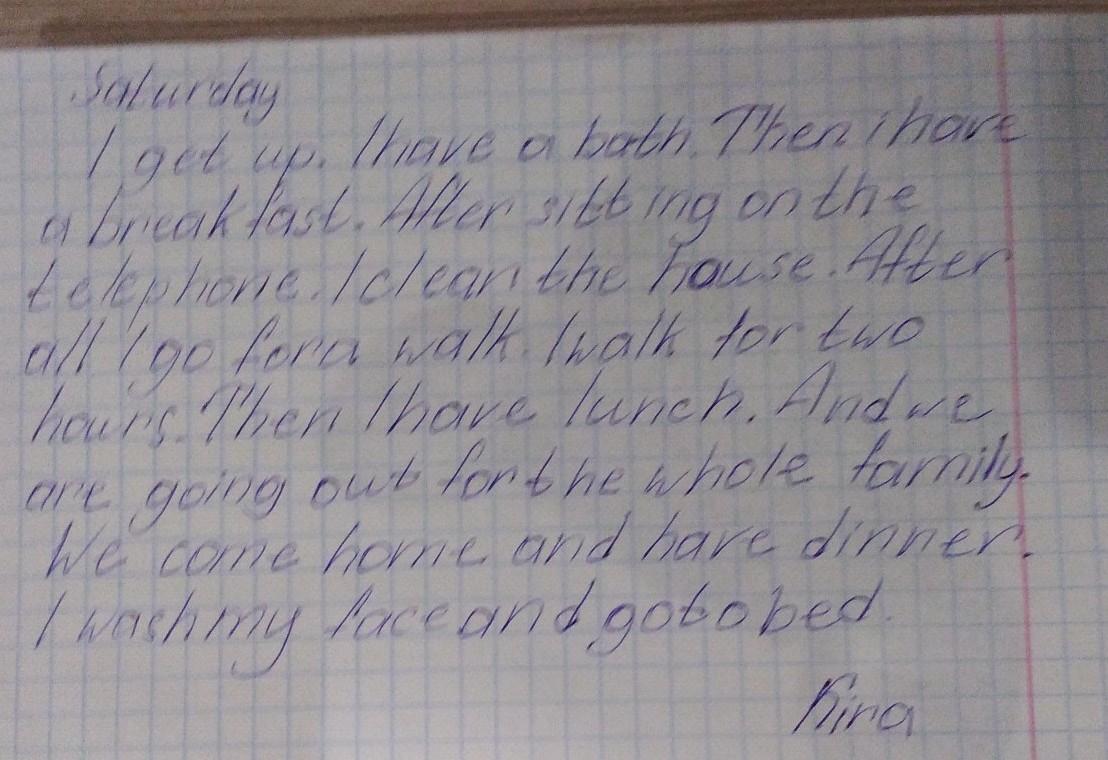 Saturday
I get up. I have a bath. Then i have
a breakfast. After sitting on the
telephone. I clean the house. After
all I go for a walk. I walk for two
hours. Then I have lunch. And we
are going out for the whole family.
We come home and have dinner.
I wash my face and go to bed.
Kira